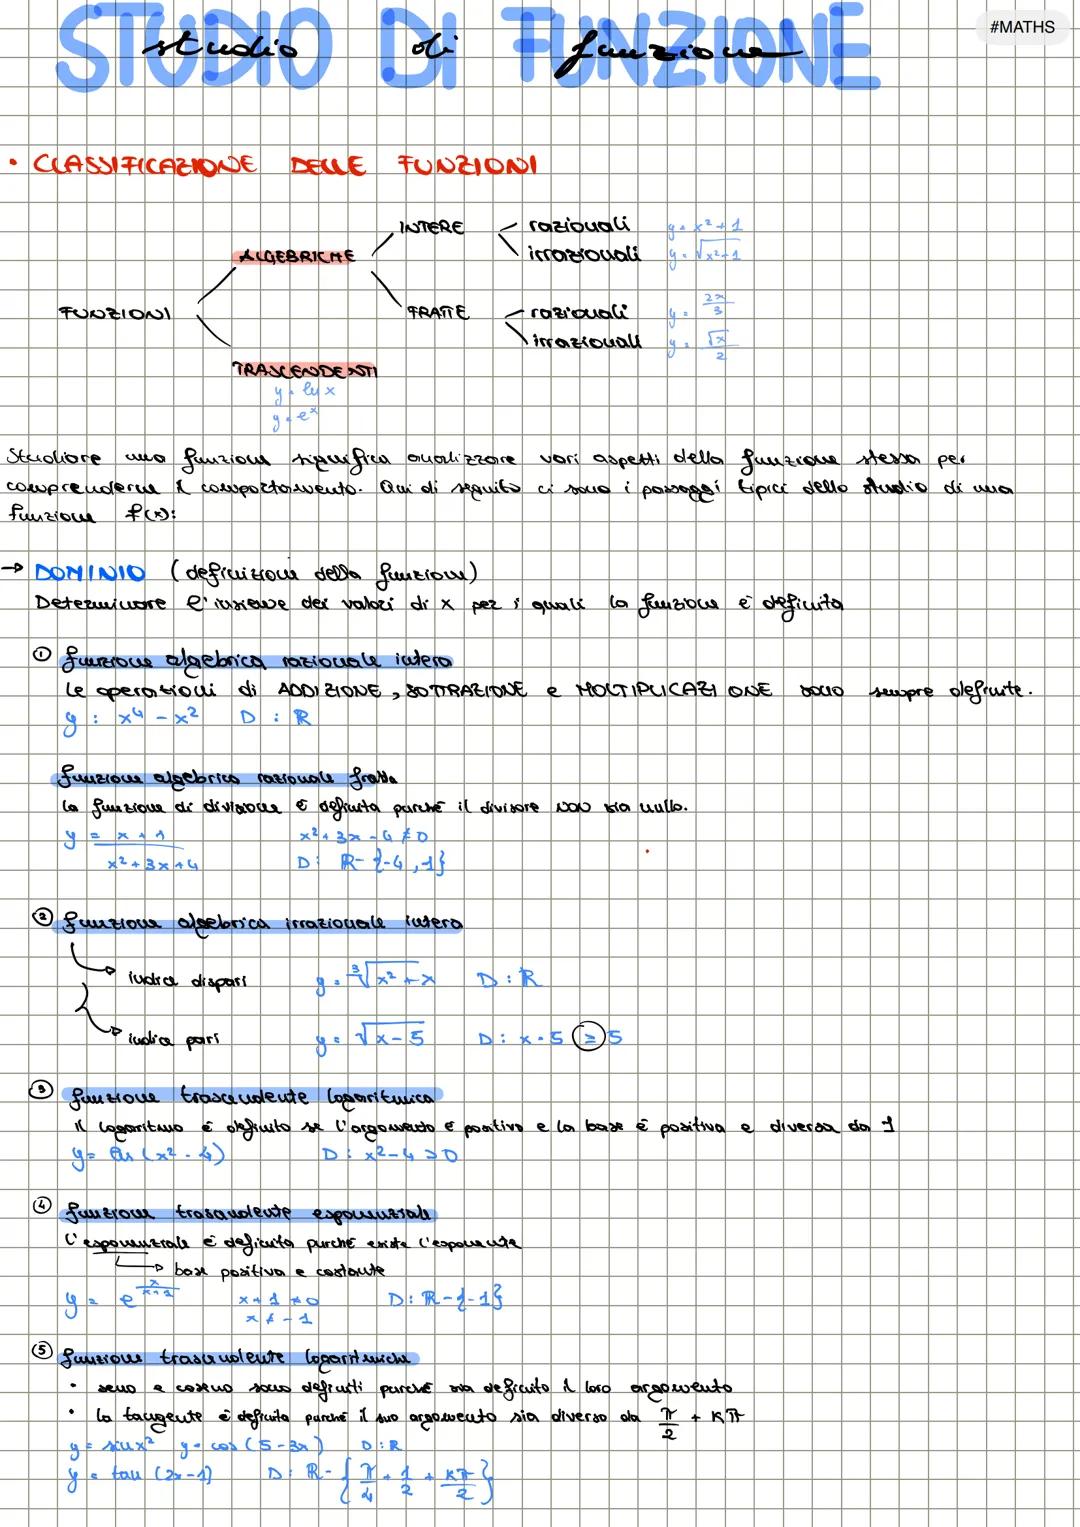 #MATHS
STUDIO DI FUNZIONE
studio di funzione
• CLASSIFICAZIONE DELLE FUNZIONI
FUNZIONI
ALGEBRICHE
INTERE
razionali y = x² + 1
irrazionali y = √x²+1
FRATTE
razionali y = 2x/3
irrazionali y = √x/2
TRASCENDENTI
y = ln x
y = eˣ
Studiare una funzione significa analizzare vari aspetti della funzione stessa per
comprenderne il comportamento. Qui di seguito ci sono i passaggi tipici dello studio di una
funzione f(x):
→ DOMINIO (definizione della funzione)
Determinare l'insieme dei valori di x per i quali la funzione è definita
① funzione algebrica razionale intera
Le operazioni di ADDIZIONE, SOTTRAZIONE e MOLTIPLICAZIONE sono sempre definite.
y : x⁴ - x² D : R
funzione algebrica razionale fratta
la funzione di divisione è definita purché il divisore non sia nullo.
y = x + 1 / x² + 3x + 4 x² + 3x - 4 ≠ 0
D: R - {-4, 1}
② funzione algebrica irrazionale intera
indice dispari y = ³√x² + x D : R
indice pari y = √x - 5 D : x - 5 ≥ 5
③ funzione trascendente logaritmica
il logaritmo è definito se l'argomento è positivo e la base è positiva e diversa da 1
y = ln (x² - 4) D : x² - 4 > 0
④ funzione trascendente esponenziale
L'esponenziale è definita purché esista l'esponente
→ base positiva e costante
y = e^x/x+1 x + 1 ≠ 0 D: R - {-1}
x ≠ - 1
⑤ funzione trascendente logaritmiche
• seno e coseno sono definiti purché sia definito il loro argomento
• la tangente è definita purché il suo argomento sia diverso da π/2 + Kπ
y = sin x² y = cos (5 - 3x) D : R
y = tan (2x - 1) D : R - {π/4 + 1/2 + Kπ/2}